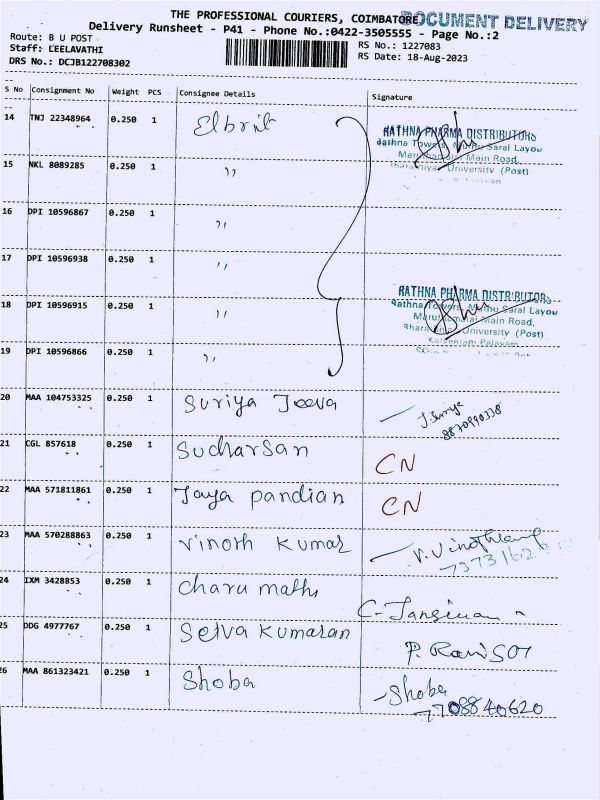 THE PROFESSIONAL COURIERS, COIMBATORE
DOCUMENT DELIVERY
Delivery Runsheet - P41 - Phone No.:0422-3505555 - Page No.:2
Route: B U POST
RS No.: 1227083
Staff: LEELAVATHI
RS Date: 18-Aug-2023
DRS No.: DCJB122708302
S No Consignment No Weight PCS Consignee Details Signature
14 TNJ 22348964 0.250 1 Elbrit
RATHNA PHARMA DISTRIBUTORS
Rathna Towers, Muthu Saral Layou
Main Road,
University (Post)
15 NKL 8089285 0.250 1 ,,
16 DPI 10596867 0.250 1 ,,
17 DPI 10596938 0.250 1 ,,
RATHNA PHARMA DISTRIBUTORS
Rathna Towers, Muthu Saral Layou
18 DPI 10596915 0.250 1 ,,
Maruthamalai Main Road,
University (Post)
19 DPI 10596866 0.250 1 ,,
20 MAA 104753325 0.250 1 Suriya Jeeva
8870990338
21 CGL 857618 0.250 1 Sudharsan CN
22 MAA 571811861 0.250 1 Jaya pandian CN
23 MAA 570288863 0.250 1 Vinoth Kumar
7373162
24 IXM 3428853 0.250 1 Charu mathi
25 DDG 4977767 0.250 1 Selva Kumaran
26 MAA 861323421 0.250 1 Shoba Shoba
7708840620